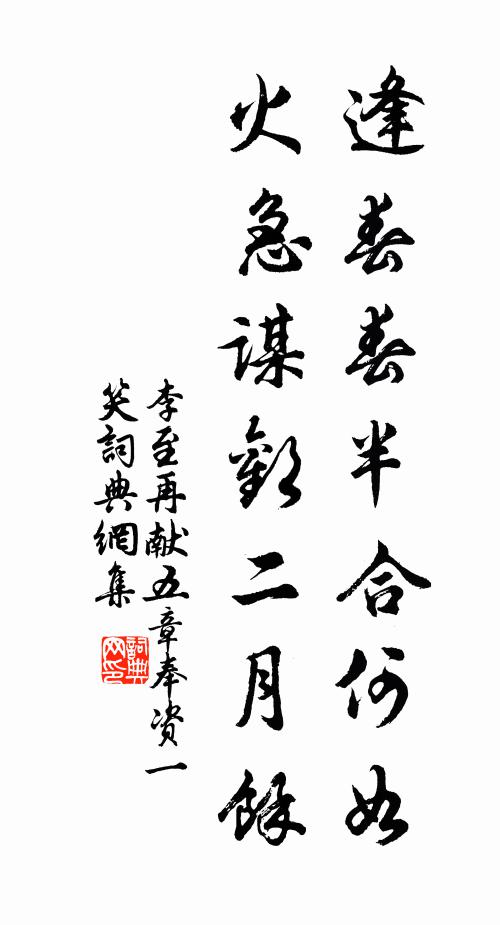 逢春春半合何如
火急謀歡二月餘
李至再献五章奉资一
笑詞典網集
詞典网印